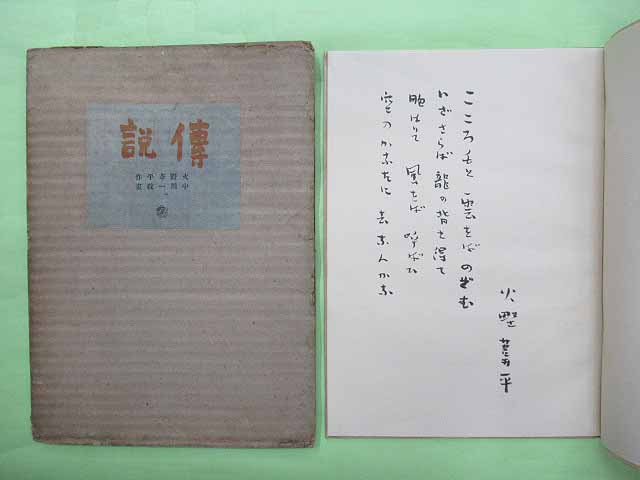 傳說
火野葦平作
中川一政
こころもと 雲をば のぞむ
いざさらば 龍の背を得て
胸はりて 風をば 呼ばひ
空のかなたに 去なんかな
火野葦平